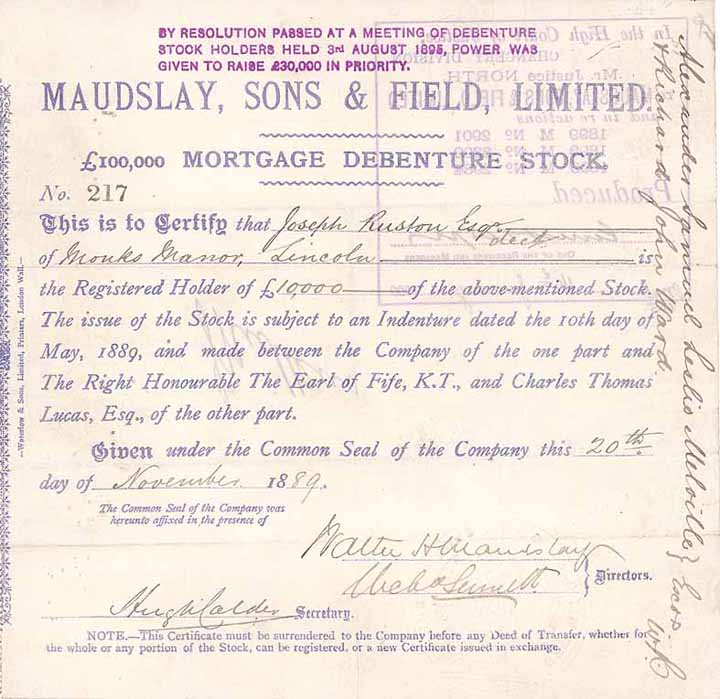 BY RESOLUTION PASSED AT A MEETING OF DEBENTURE
STOCK HOLDERS HELD 3rd AUGUST 1895, POWER WAS
GIVEN TO RAISE £30,000 IN PRIORITY.
MAUDSLAY, SONS & FIELD, LIMITED.
£100,000 MORTGAGE DEBENTURE STOCK.
No. 217
This is to Certify that Joseph Ruston Esqr. decd
of Monks Manor, Lincoln is
the Registered Holder of £10,000 of the above-mentioned Stock.
The issue of the Stock is subject to an Indenture dated the 10th day of
May, 1889, and made between the Company of the one part and
The Right Honourable The Earl of Fife, K.T., and Charles Thomas
Lucas, Esq., of the other part.
Given under the Common Seal of the Company this 20th
day of November 1889.
The Common Seal of the Company was
hereunto affixed in the presence of
Walter H Maudslay
Directors.
Hugh Calder Secretary.
NOTE.—This Certificate must be surrendered to the Company before any Deed of Transfer, whether for
the whole or any portion of the Stock, can be registered, or a new Certificate issued in exchange.
Alexander Samuel Leslie Melville
& Richard John Ward
—Waterlow & Sons, Limited, Printers, London Wall.—
In the High Court of Justice
CHANCERY DIVISION
Mr. Justice NORTH
and in re actions
1899 M No 2001
Produced